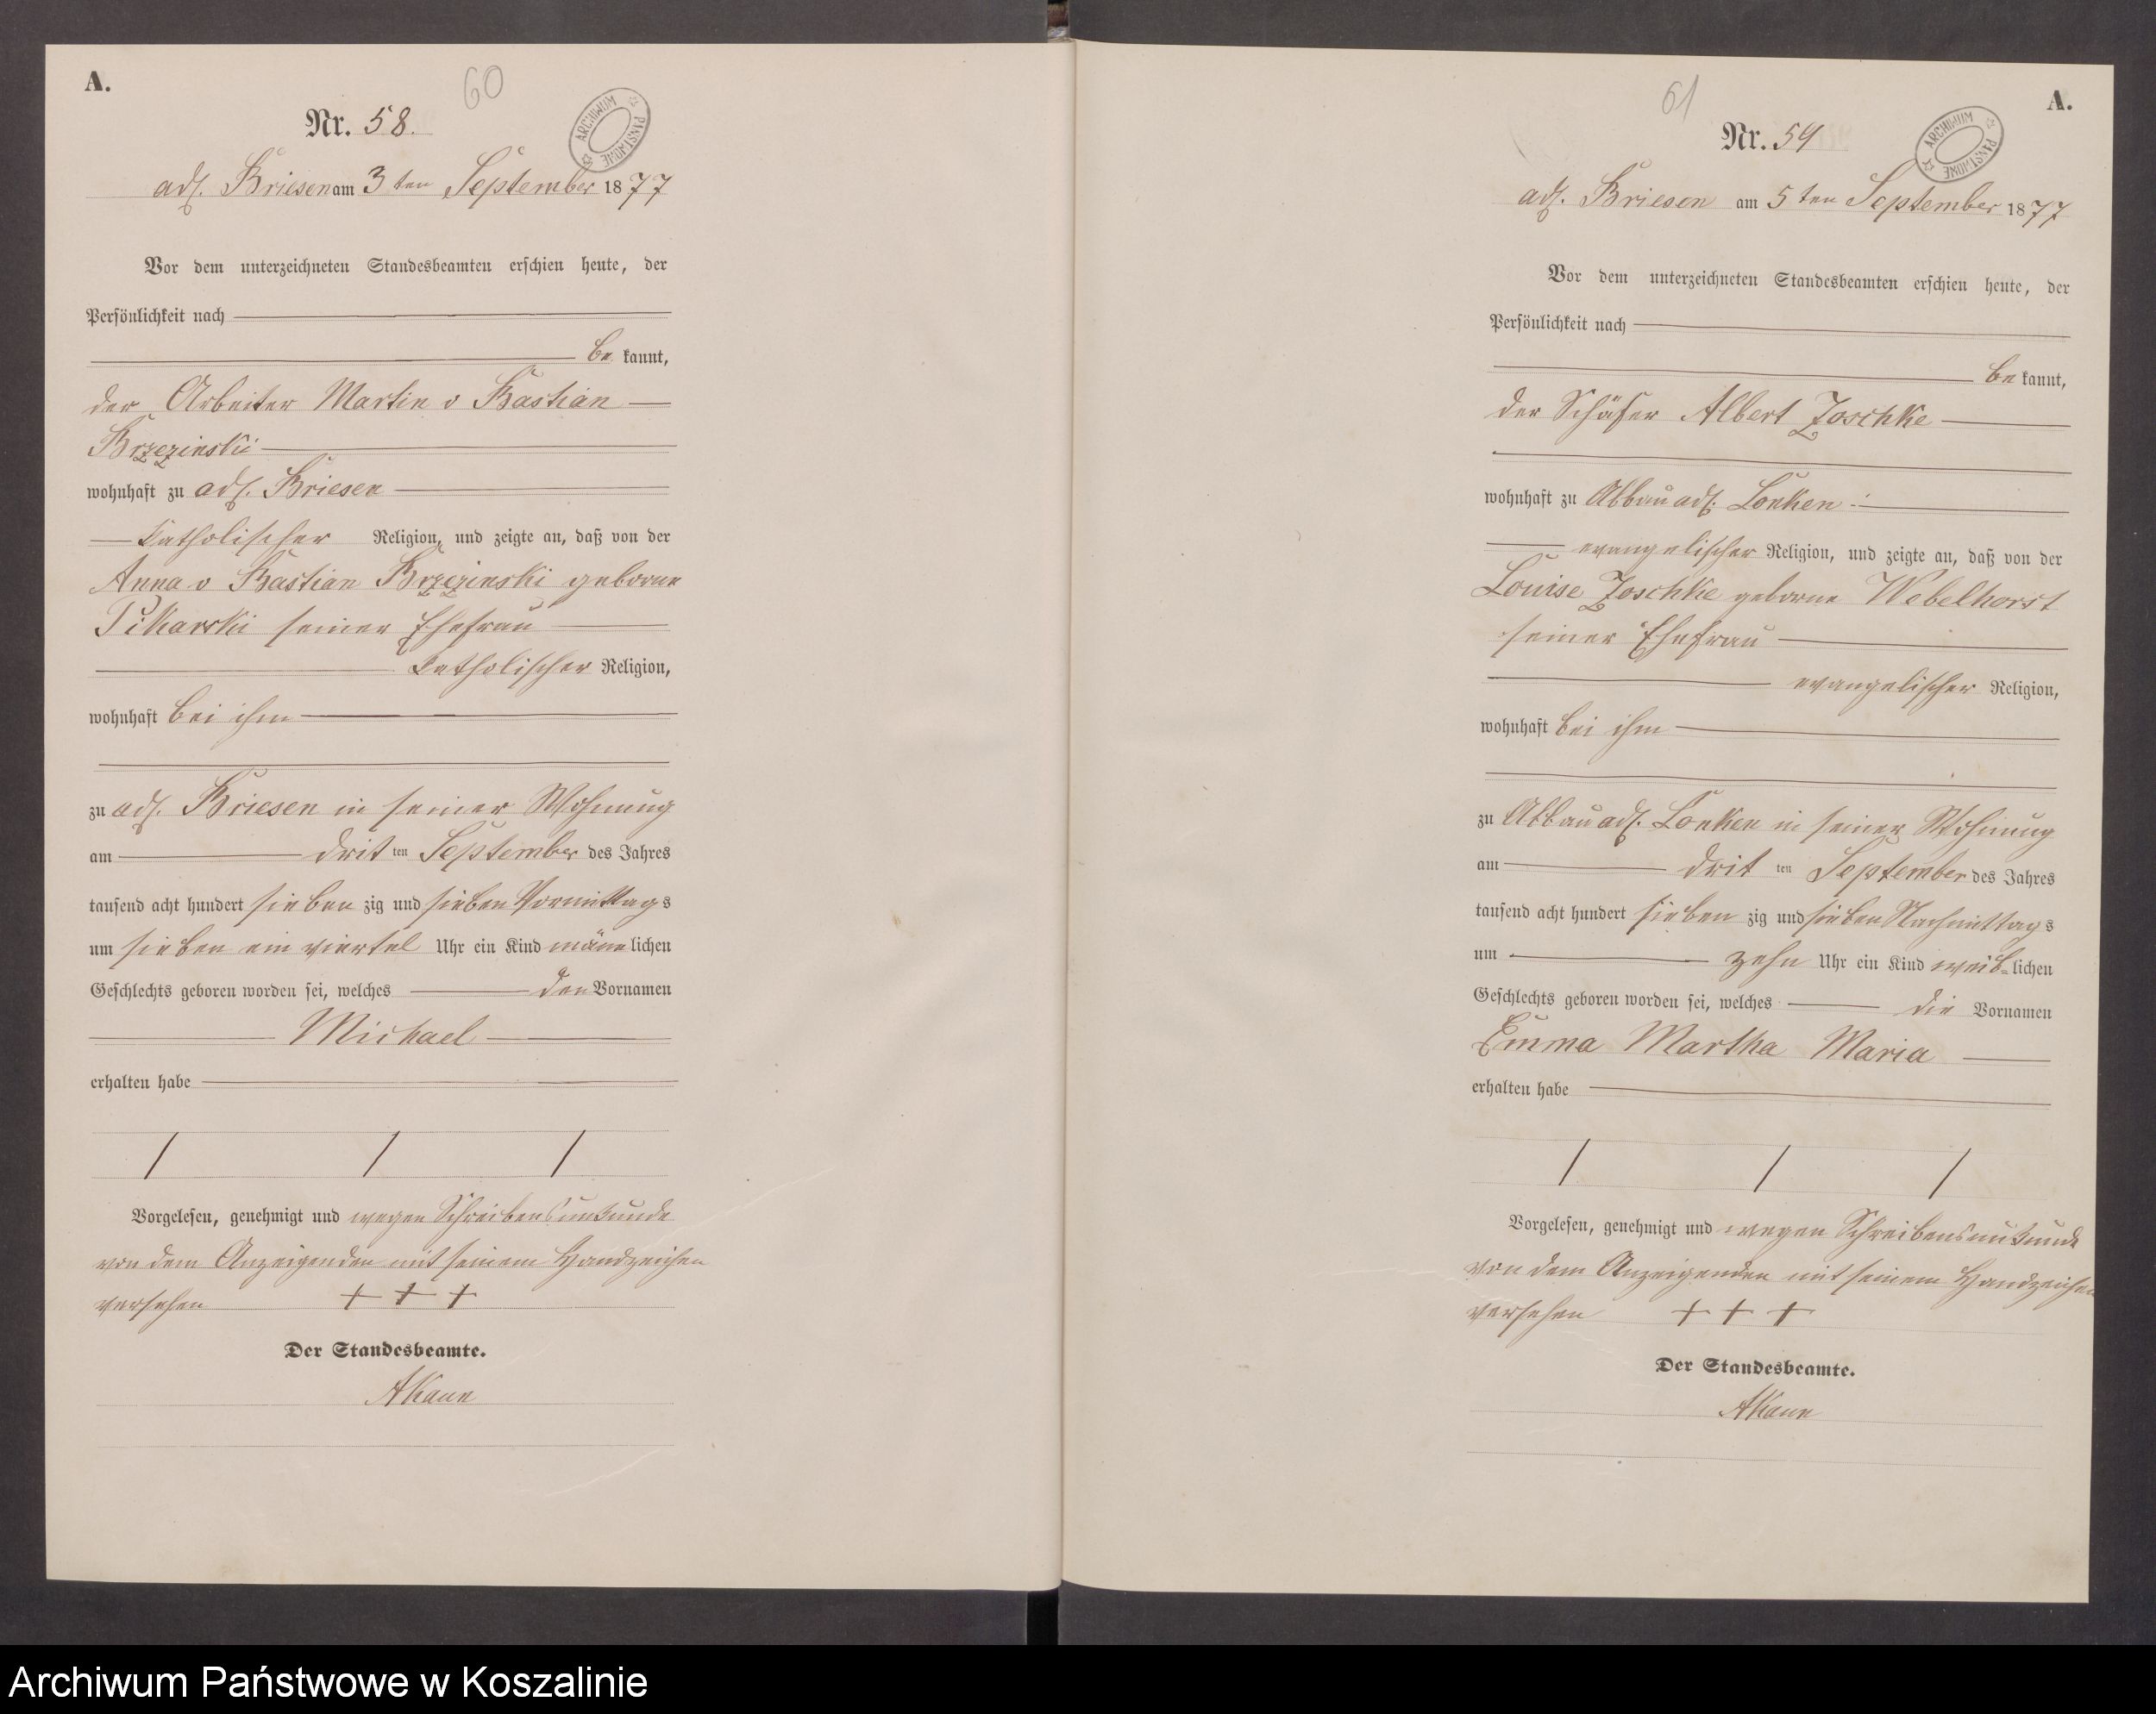 A.
60
Nr. 58.
ARCHIWUM PAŃSTWOWE
adl. Briesen am 3 ten September 1877
Vor dem unterzeichneten Standesbeamten erschien heute, der
Persönlichkeit nach
be kannt,
der Arbeiter Martin v Bastian
Brzezinski
wohnhaft zu adl. Briesen
katholischer Religion, und zeigte an, daß von der
Anna v Bastian Brzezinski geborne
Pikarski seiner Ehefrau
katholischer Religion,
wohnhaft bei ihm
zu adl. Briesen in seiner Wohnung
am drit ten September des Jahres
tausend acht hundert sieben zig und sieben Vormittags
um sieben ein viertel Uhr ein Kind männlichen
Geschlechts geboren worden sei, welches den Vornamen
Michael
erhalten habe
Vorgelesen, genehmigt und wegen Schreibensunkunde
von dem Anzeigenden mit seinem Handzeichen
versehen + + +
Der Standesbeamte.
AKaun
61
A.
Nr. 59
ARCHIWUM PAŃSTWOWE
adl. Briesen am 5 ten September 1877
Vor dem unterzeichneten Standesbeamten erschien heute, der
Persönlichkeit nach
be kannt,
der Schäfer Albert Zoschke
wohnhaft zu Abbau adl. Lonken
evangelischer Religion, und zeigte an, daß von der
Louise Zoschke geborne Webelhorst
seiner Ehefrau
evangelischer Religion,
wohnhaft bei ihm
zu Abbau adl. Lonken in seiner Wohnung
am drit ten September des Jahres
tausend acht hundert sieben zig und sieben Nachmittags
um zehn Uhr ein Kind weib-lichen
Geschlechts geboren worden sei, welches die Vornamen
Emma Martha Maria
erhalten habe
Vorgelesen, genehmigt und wegen Schreibensunkunde
von dem Anzeigenden mit seinem Handzeichen
versehen + + +
Der Standesbeamte.
AKaun
Archiwum Państwowe w Koszalinie